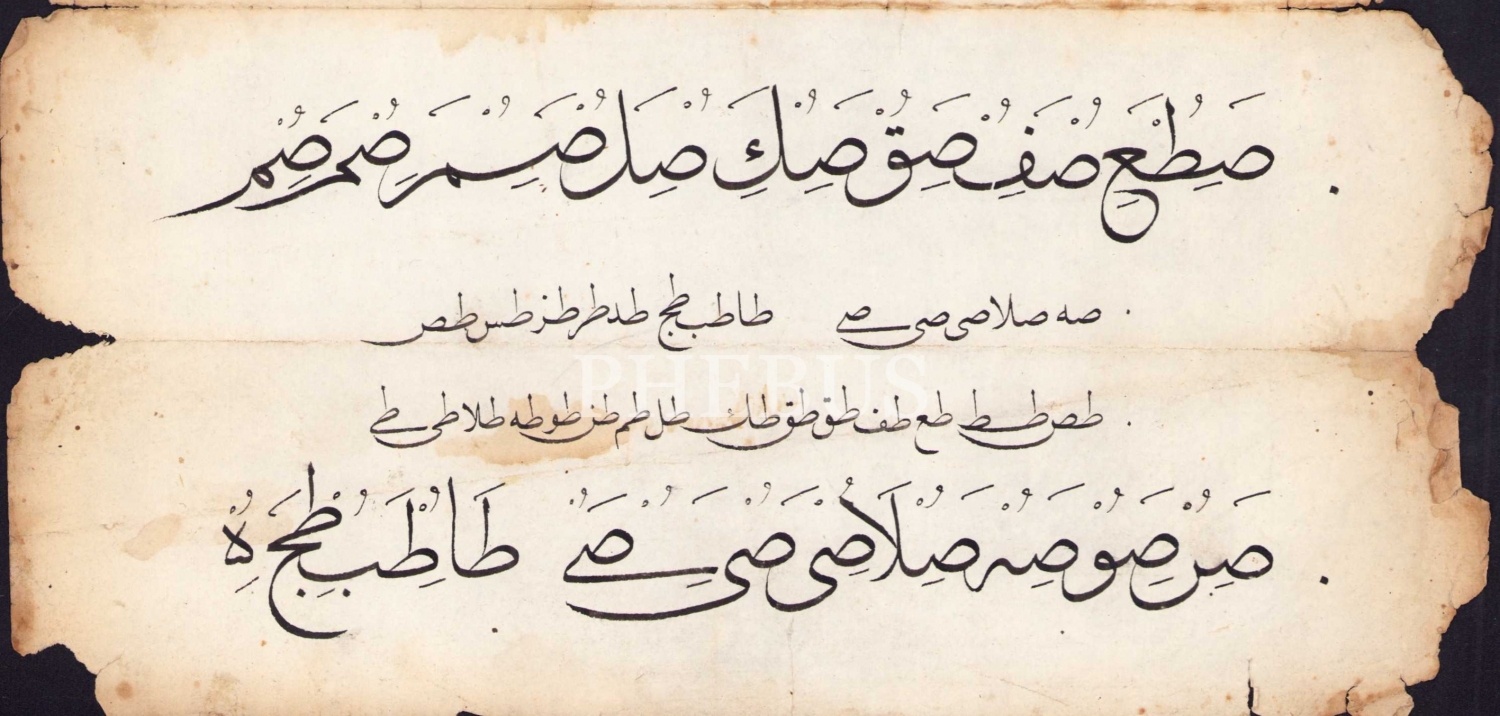 صَطُعِ صُفِ صِقُ صِكِ صُلَ صُمَ صُمِ صُمِ
صه صلا صى صى صے طا طب طج طد طر طز طس طص
طص طط طع طف طق طق طك طل طم طن طو طه طلا طى طے
صِنُ صِوُ صِه صُلَا صِى صَى صَے طَا طِبَ طِجَ هُ
PHEBUS